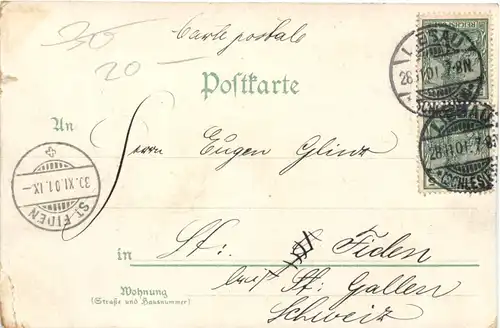 30
20 -
Carte postale
Postkarte
REICHSPOST
LIEGAU
28.11.01.7-8N
(SCHLESIEN)
28.11.01.7-8N
(SCHLESIEN)
An
Herrn Eugen Glinz
30.XI.01.IX-
ST. FIDEN
in St: Fiden
bei St: Gallen
Schweiz
Wohnung
(Straße und Hausnummer)